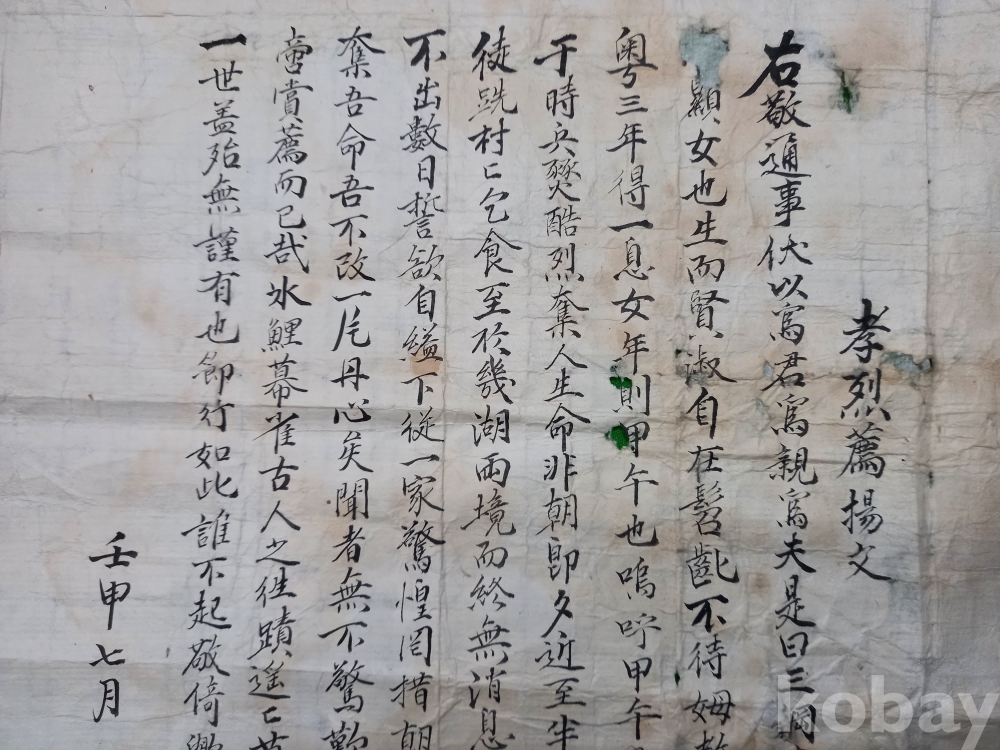 孝烈薦揚文
右敬通事伏以爲君爲親爲夫是曰三綱
顯女也生而賢淑自在髫齔不待姆敎
粤三年得一息女年則甲午也嗚呼甲午
于時兵燹酷烈奪人生命非朝卽夕近至半
徒跣村亡乞食至於畿湖兩境而終無消息
不出數日誓欲自縊下從一家驚惶罔措朝
奪吾命吾不改一片丹心矣聞者無不驚歎
啻賞薦而已哉氷鯉幕雀古人之徃蹟遥亡
一世盖殆無謹有也節行如此誰不起敬倚
壬申七月
kobay